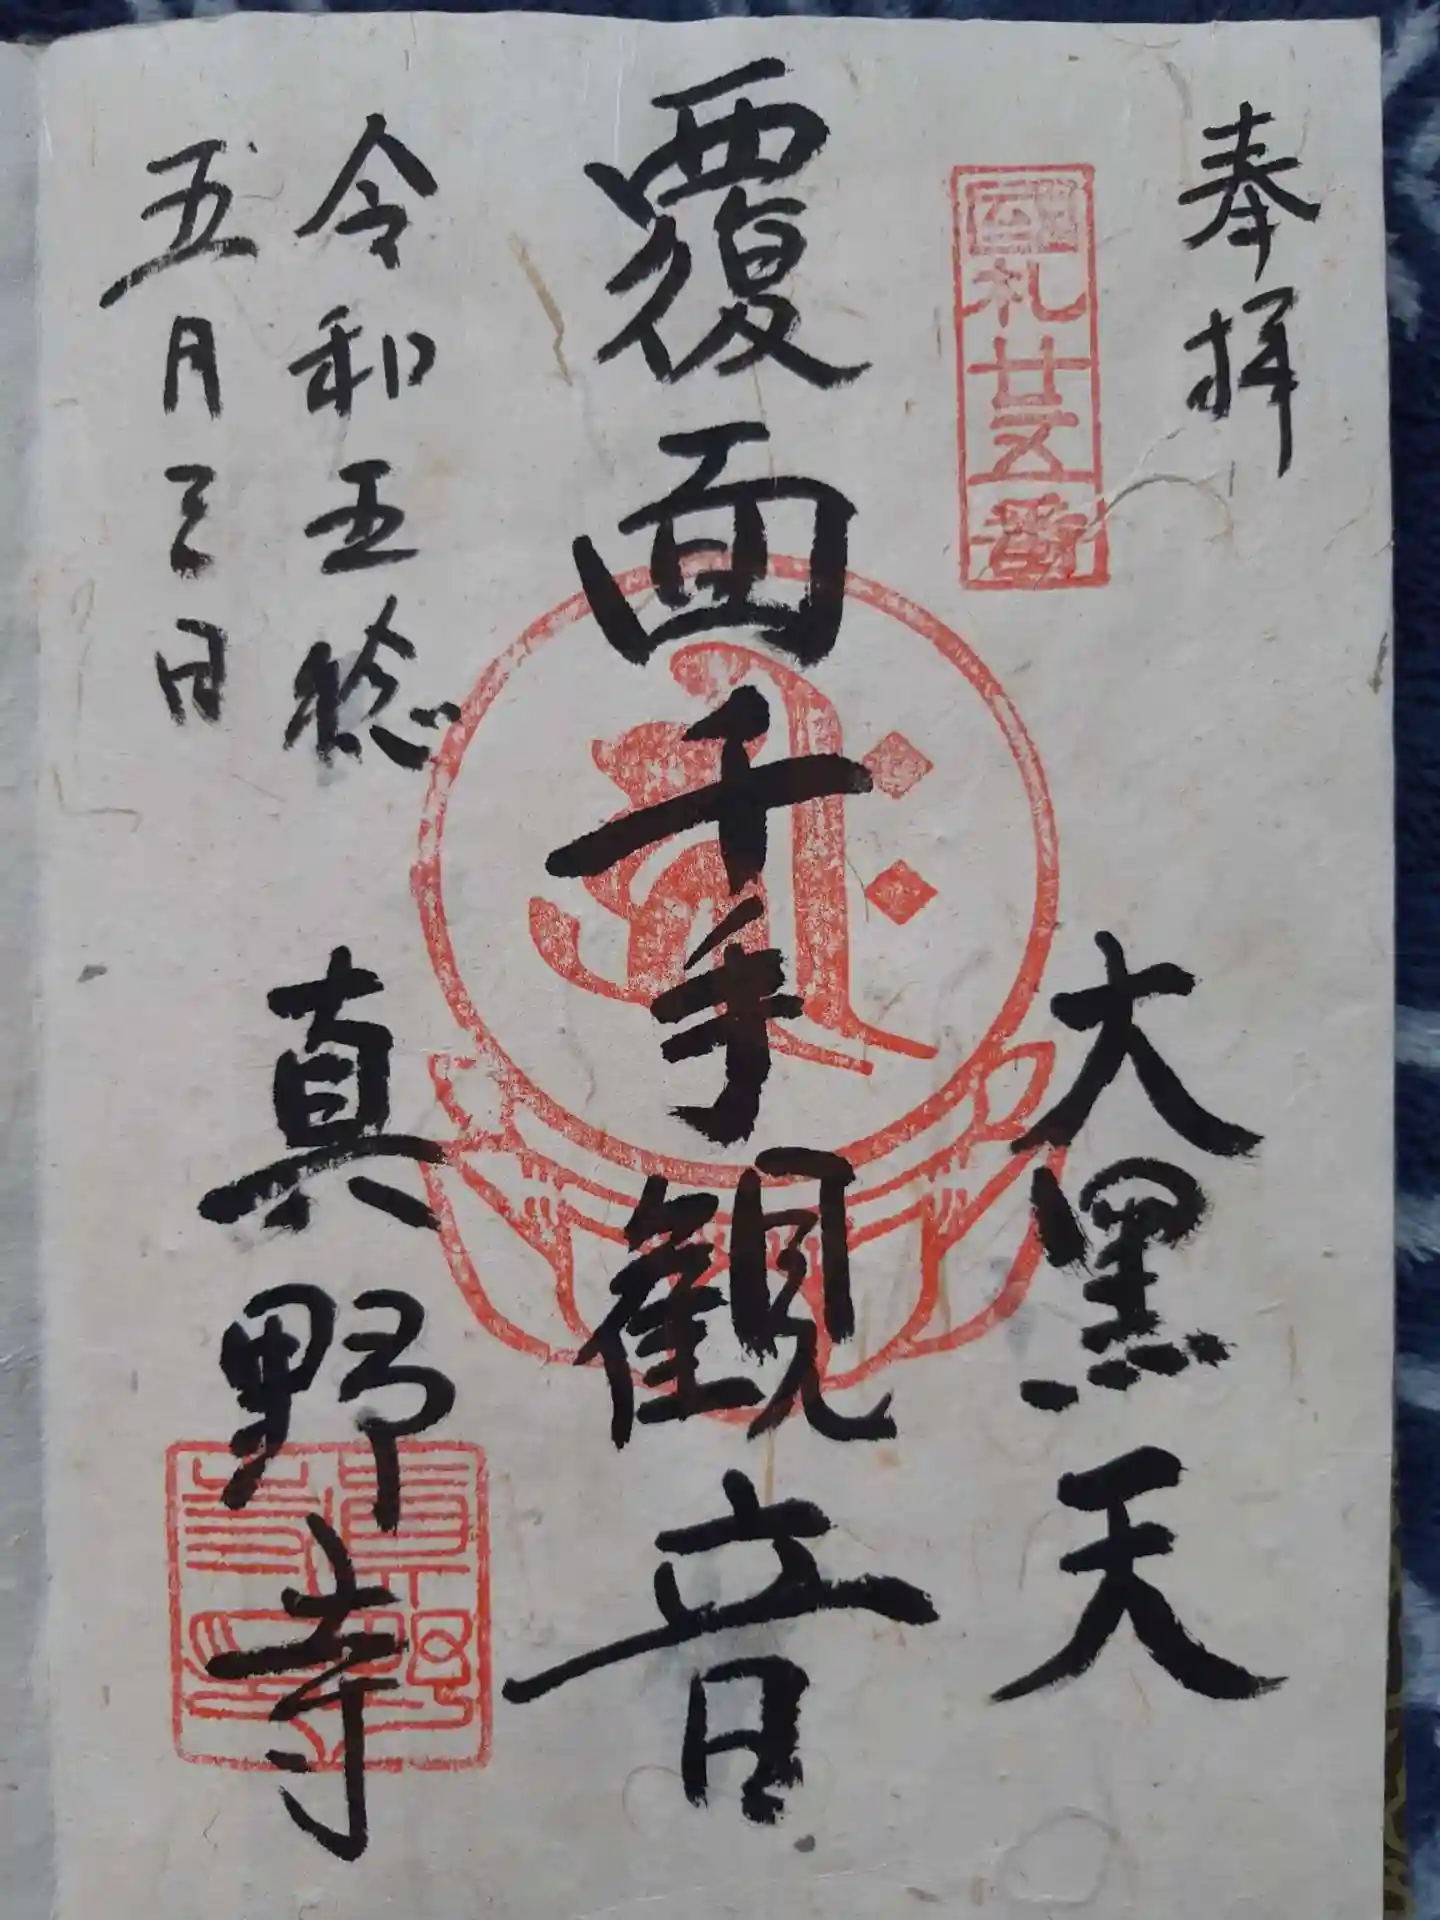 奉拝
國札廿五番
大黑天
覆面千手観音
令和五稔
五月三日
真野寺